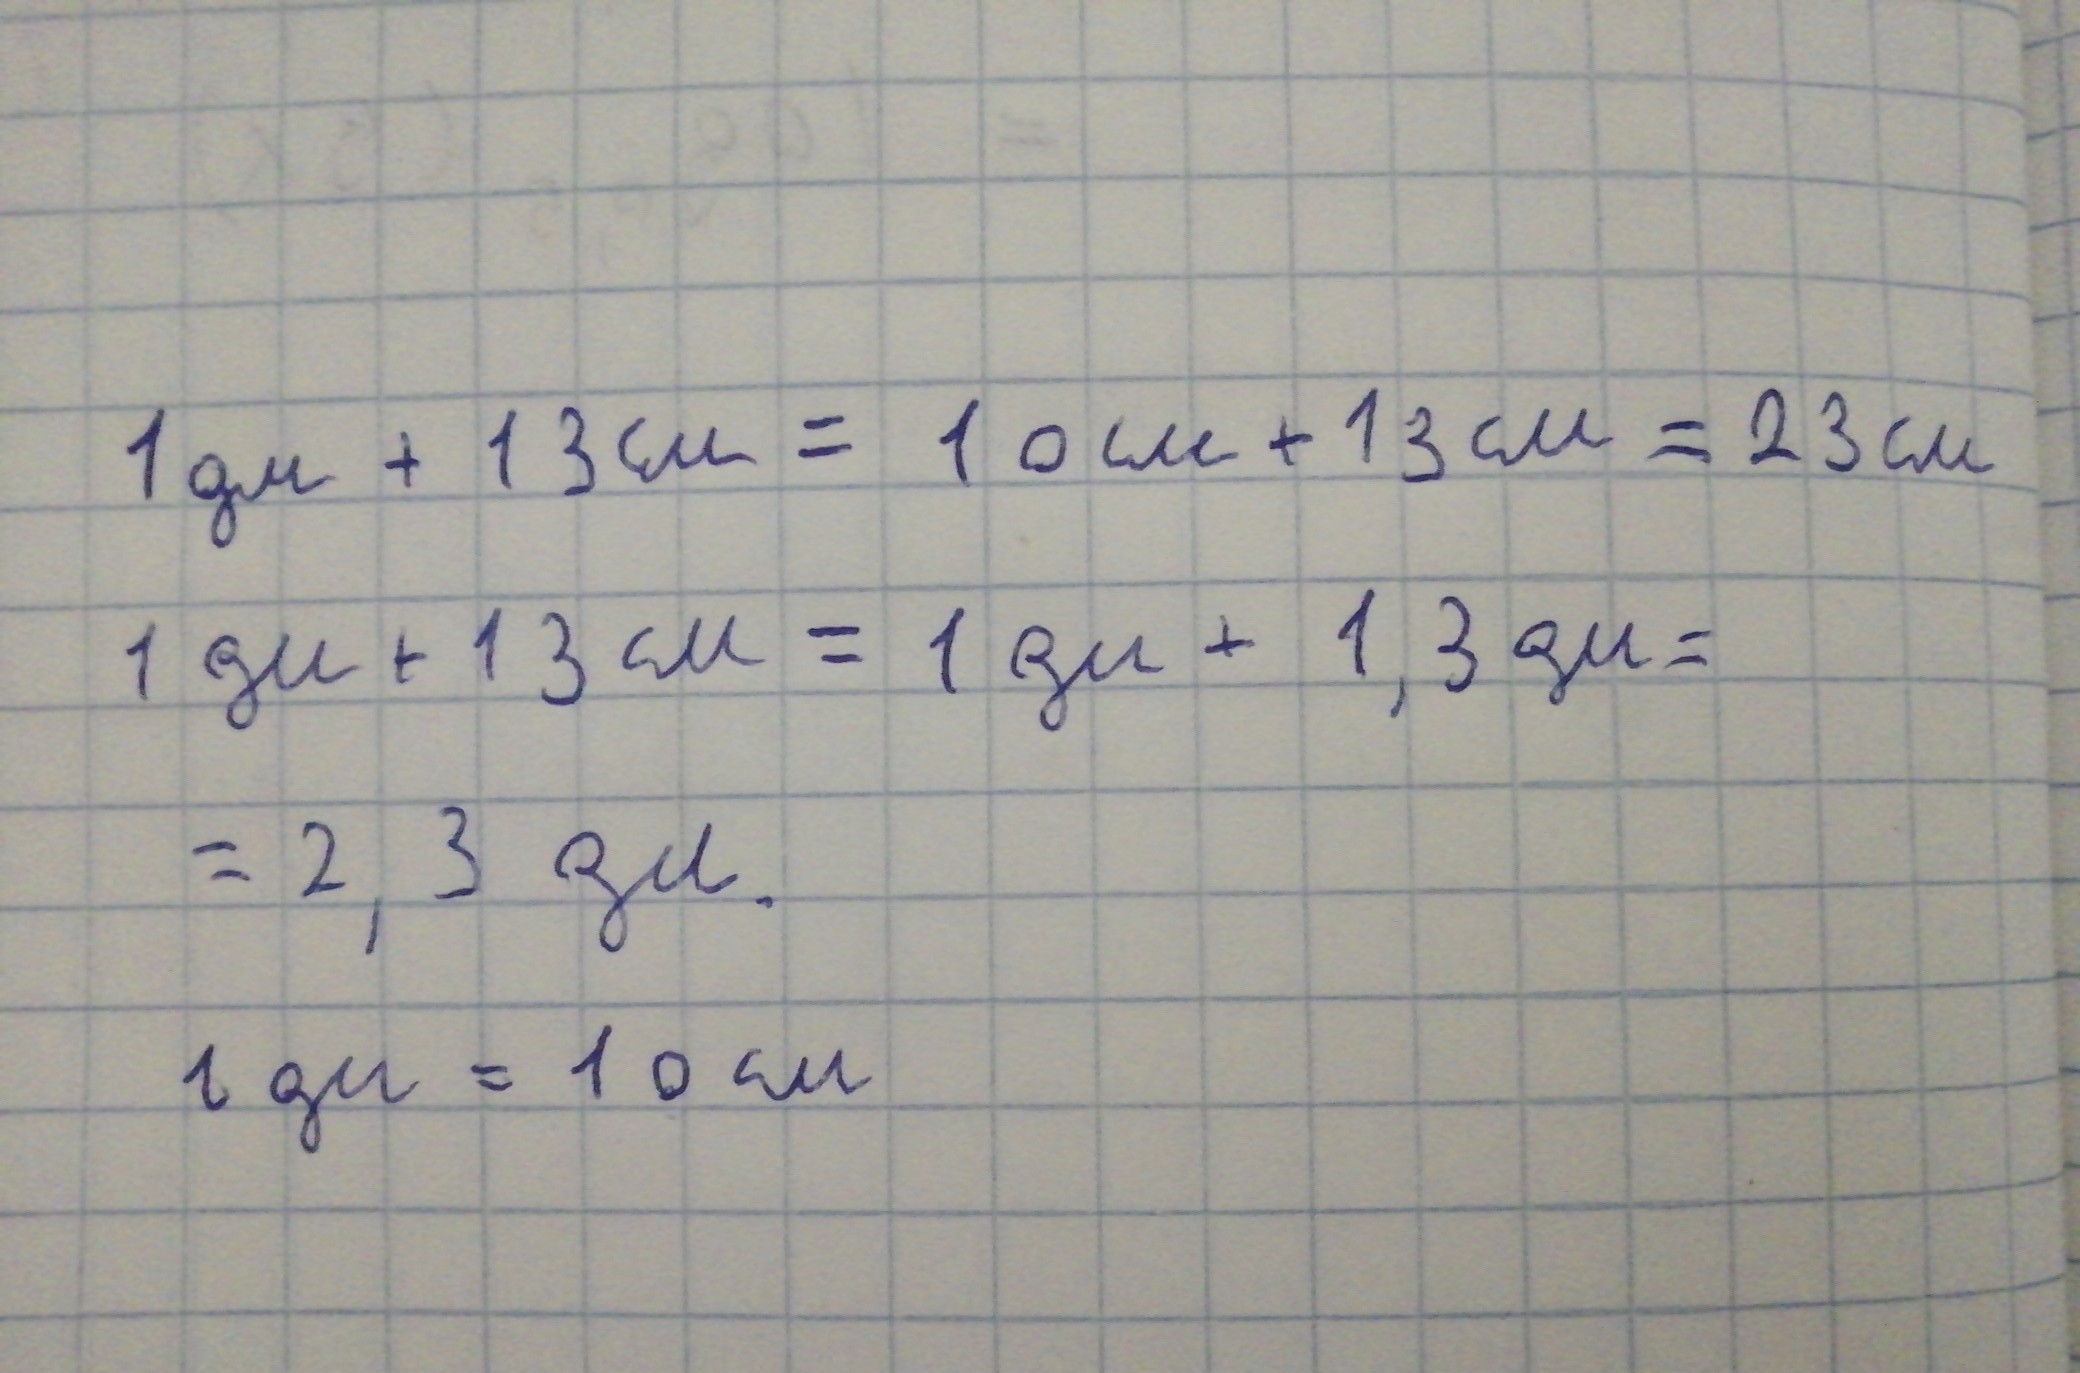 1 дм + 13 см = 10 см + 13 см = 23 см
1 дм + 13 см = 1 дм + 1,3 дм =
= 2,3 дм.
1 дм = 10 см